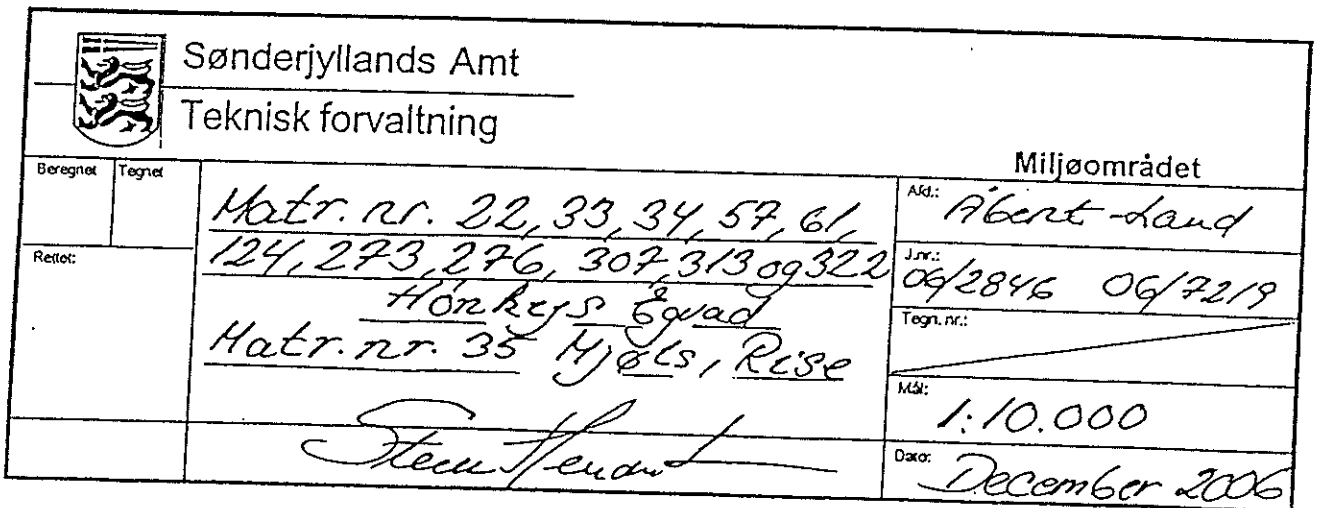 Sønderjyllands Amt
Teknisk forvaltning
Miljøområdet
Beregnet
Tegnet
Rettet:
Matr. nr. 22, 33, 34, 57, 61,
124, 273, 276, 307, 313 og 322
Egvad
Matr. nr. 35 Mjøls, Rise
Afd.:
Åbent Land
J.nr.:
06/2846 06/7219
Tegn. nr.:
Mål:
1:10.000
Dato:
December 2006